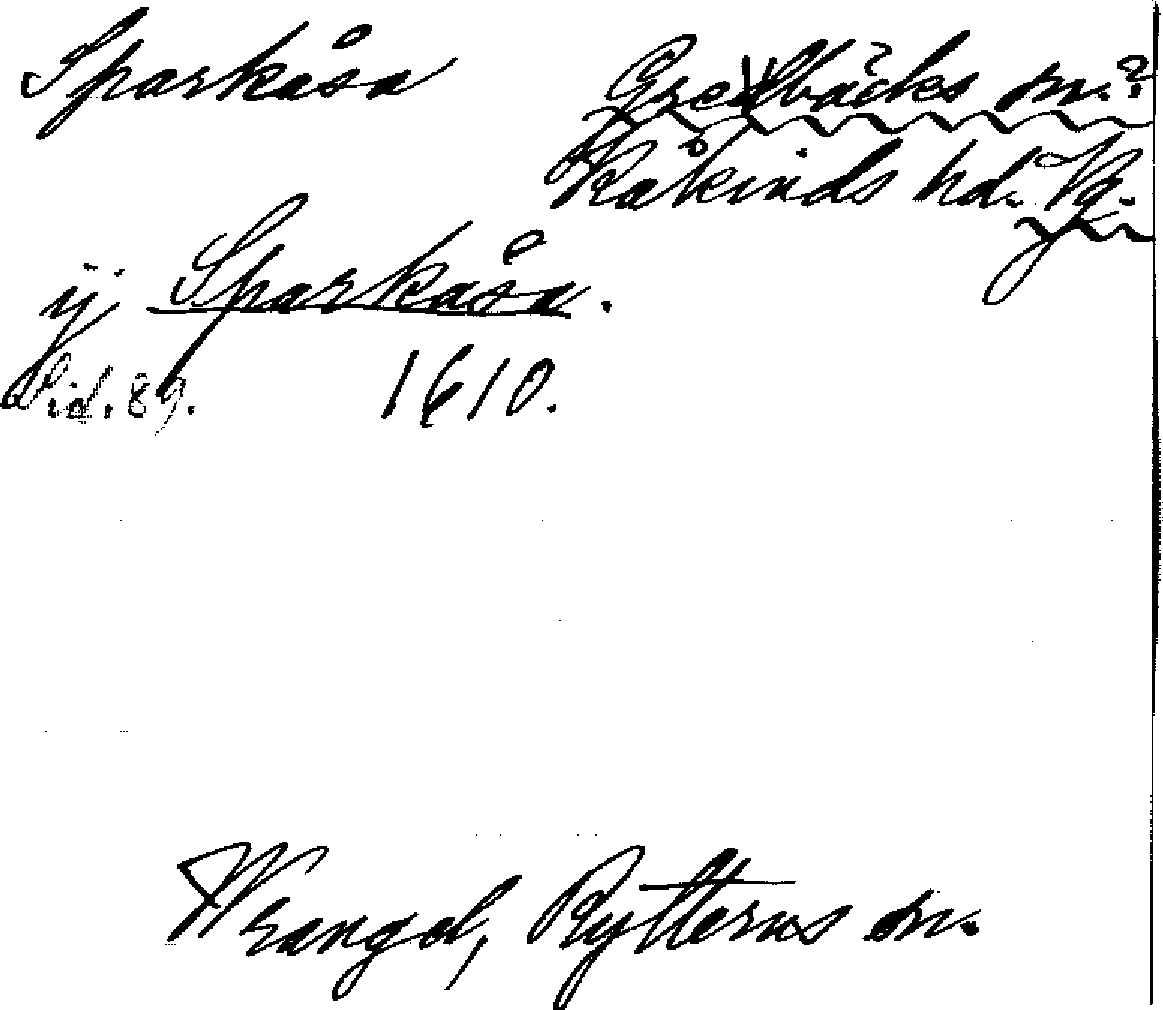 Sparkåsa
Grevbäcks sn.?
Kåkinds hd. Vg.
ÿ Sparkåsa.
Sid. 89. 1610.
Wrangel, Rytterns sn.